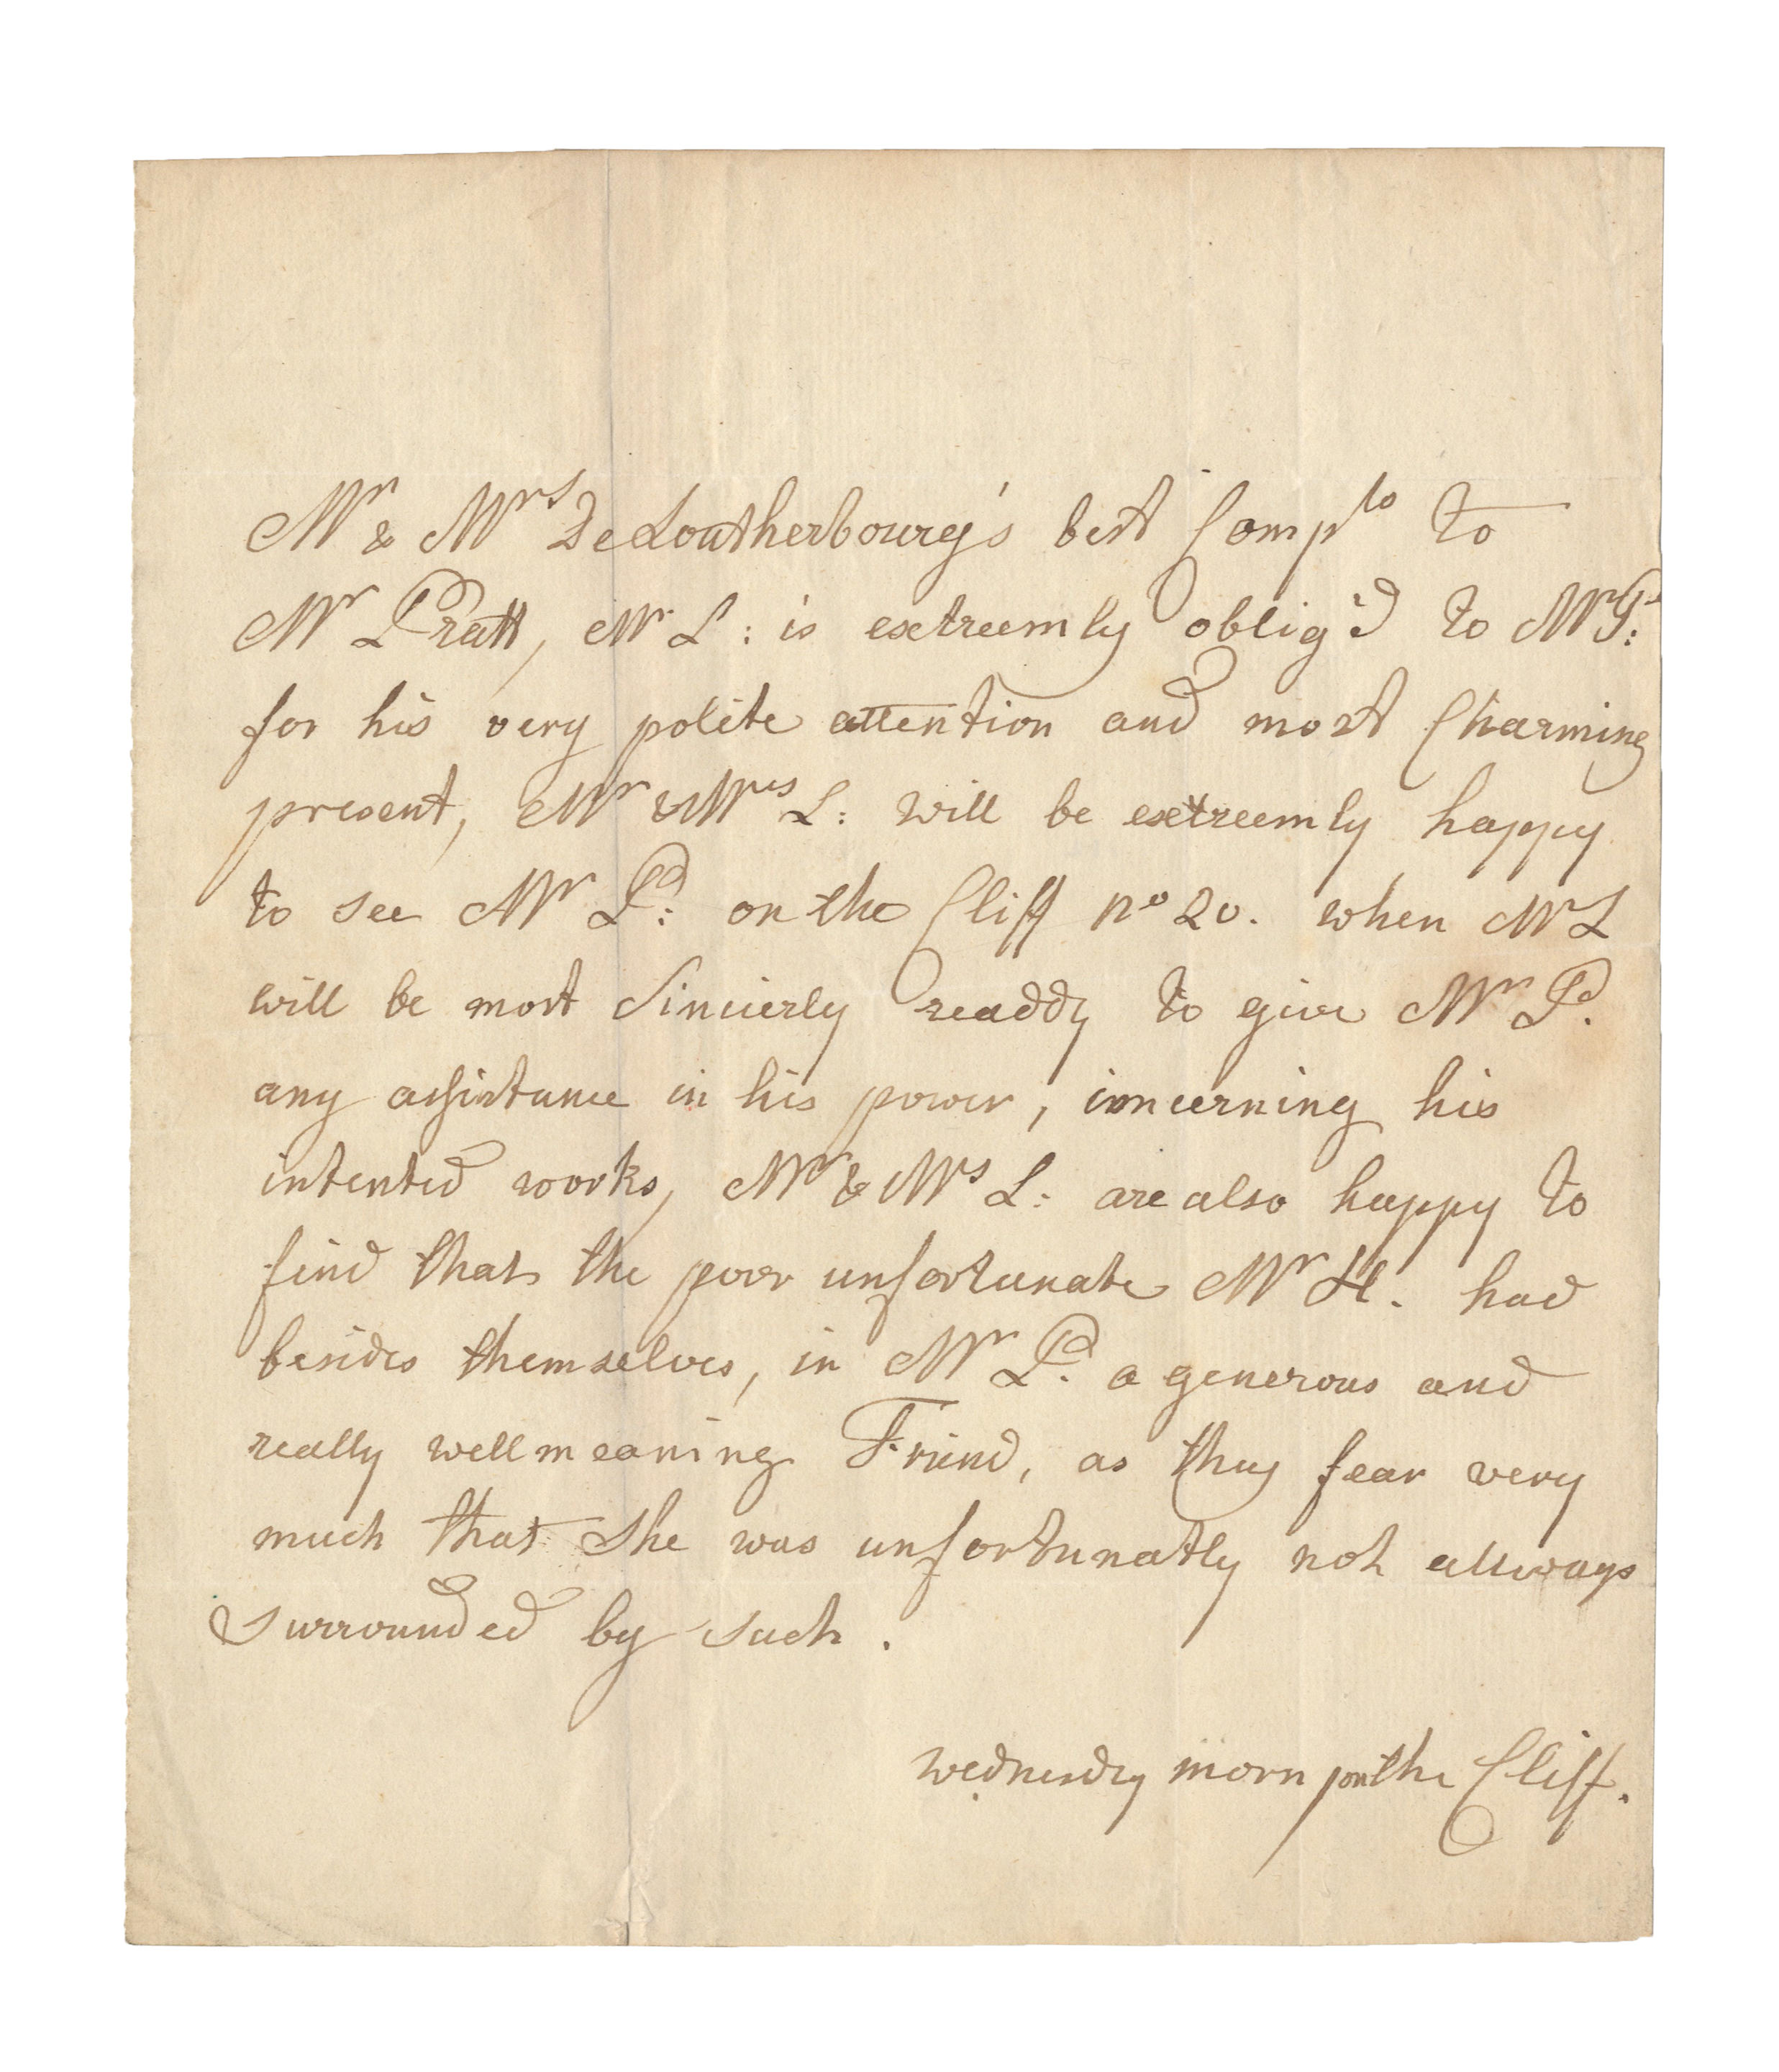 Mr & Mrs De Loutherbourg's best Compts to
Mr Pratt, Mr L: is extreemly oblig'd to Mr P:
for his very polite attention and most Charming
present, Mr & Mrs L: will be extreemly happy
to see Mr P: on the Cliff no 20. when Mr L
will be most Sincierly readdy to give Mr P.
any assistance in his power, concerning his
intented works, Mr & Mrs L: are also happy to
find that the poor unfortunate Mr H. had
besides themselves, in Mr P. a generous and
really wellmeaning Friend, as they fear very
much that She was unfortunatly not allways
surrounded by such.
wednesdy morn on the Cliff.